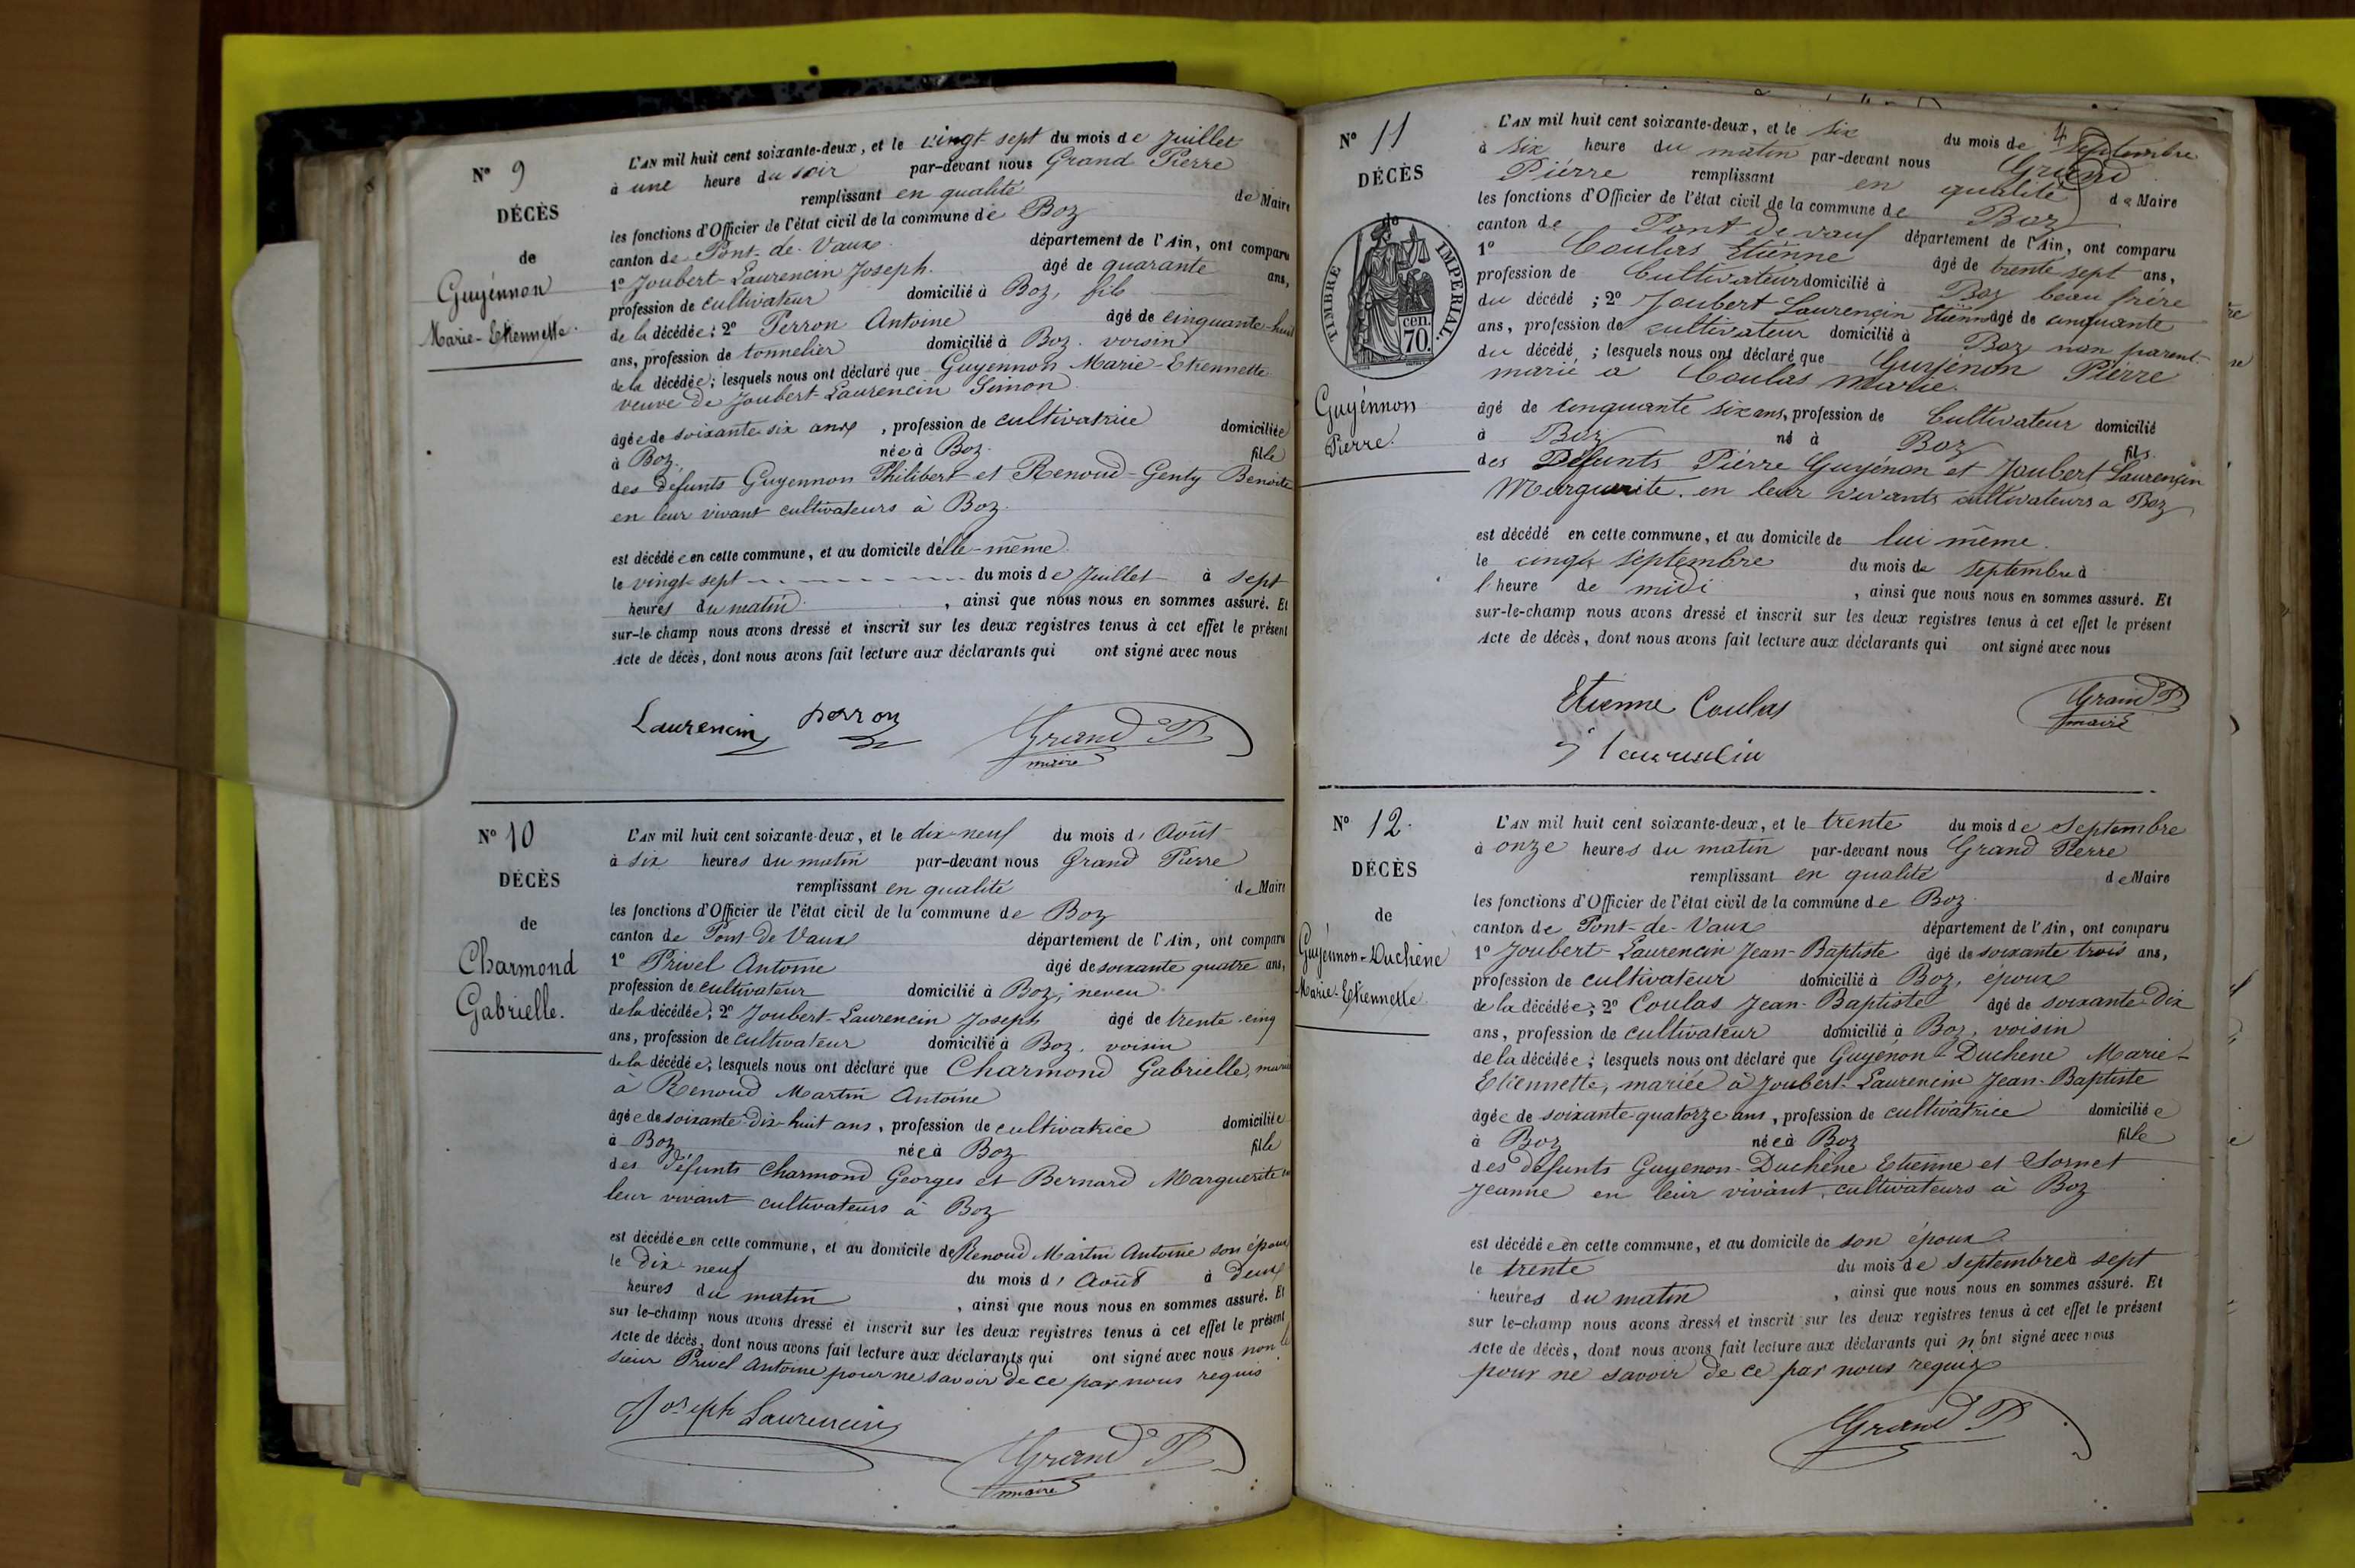 N° 9
DÉCÈS
de
Guyénnon
Marie-Etiennette.
L'AN mil huit cent soixante-deux, et le vingt-sept du mois de Juillet
à une heure du soir par-devant nous Grand Pierre
remplissant en qualité de Maire
les fonctions d'Officier de l'état civil de la commune de Boz
canton de Pont-de-Vaux département de l'Ain, ont comparu
1° Joubert-Laurencin Joseph. âgé de quarante ans,
profession de cultivateur domicilié à Boz, fils
de la décédée; 2° Perron Antoine âgé de cinquante-huit
ans, profession de tonnelier domicilié à Boz. voisin
de la décédée; lesquels nous ont déclaré que Guyennon Marie-Etiennette
veuve de Joubert-Laurencin Simon
âgée de soixante six ans, profession de cultivatrice domiciliée
à Boz, née à Boz fille
des defunts Guyennon Philibert et Renoud-Genty Benoite
en leur vivant cultivateurs à Boz.
est décédée en cette commune, et au domicile d'elle-même.
le vingt-sept du mois de Juillet à sept
heures du matin, ainsi que nous nous en sommes assuré. Et
sur-le-champ nous avons dressé et inscrit sur les deux registres tenus à cet effet le présent
Acte de décès, dont nous avons fait lecture aux déclarants qui ont signé avec nous
Laurencin perron Grand P
maire
N° 10
DÉCÈS
de
Charmond
Gabrielle.
L'AN mil huit cent soixante-deux, et le dix-neuf du mois d' Août
à six heures du matin par-devant nous Grand Pierre
remplissant en qualité de Maire
les fonctions d'Officier de l'état civil de la commune de Boz
canton de Pont-de-Vaux département de l'Ain, ont comparu
1° Privel Antoine âgé de soixante quatre ans,
profession de cultivateur domicilié à Boz, neveu
de la décédée; 2° Joubert-Laurencin Joseph âgé de trente-cinq
ans, profession de cultivateur domicilié à Boz. voisin
de la décédée; lesquels nous ont déclaré que Charmond Gabrielle,
à Renoud Martin Antoine
âgée de soixante-dix-huit ans, profession de cultivatrice domiciliée
à Boz née à Boz fille
des défunts Charmond Georges et Bernard Marguerite en
leur vivant cultivateurs à Boz
est décédée en cette commune, et au domicile de Renoud Martin Antoine son époux
le dix-neuf du mois d' Août à deux
heures du matin, ainsi que nous nous en sommes assuré. Et
sur le-champ nous avons dressé et inscrit sur les deux registres tenus à cet effet le présent
Acte de décès, dont nous avons fait lecture aux déclarants qui ont signé avec nous non le
sieur Privel Antoine pour ne savoir de ce par nous requis
Joseph Laurencin
Grand P
maire
4
N° 11
DÉCÈS
de
TIMBRE IMPERIAL.
70. cen.
Guyénnon
Pierre.
L'AN mil huit cent soixante-deux, et le six du mois de Septembre
à six heure du matin par-devant nous Grand
Piérre remplissant en qualité de Maire
les fonctions d'Officier de l'état civil de la commune de Boz
canton de Pont de vaux département de l'Ain, ont comparu
1° Coulas Etiénne âgé de trente sept ans,
profession de Cultivateur domicilié à Boz beau frére
du décédé; 2° Joubert Laurencin Etienne âgé de cinquante
ans, profession de cultivateur domicilié à Boz non parent
du décédé; lesquels nous ont déclaré que Guyénon Piérre
marié a Coulas Marie.
âgé de cinquante six ans, profession de Cultivateur domicilié
à Boz né à Boz fils
des Défunts Piérre Guyénon et Joubert Laurençin
Marguerite. en leur vivants cultivateurs a Boz
est décédé en cette commune, et au domicile de lui même.
le cinqx septembre du mois de Septembre à
l'heure de midi, ainsi que nous nous en sommes assuré. Et
sur-le-champ nous avons dressé et inscrit sur les deux registres tenus à cet effet le présent
Acte de décès, dont nous avons fait lecture aux déclarants qui ont signé avec nous
Etienne Coulas Grand P
maire
N° 12.
DÉCÈS
de
Guyénnon-Duchêne
Marie-Etiennette.
L'AN mil huit cent soixante-deux, et le trente du mois de Septembre
à onze heures du matin par-devant nous Grand Pierre
remplissant en qualité de Maire
les fonctions d'Officier de l'état civil de la commune de Boz.
canton de Pont-de-Vaux département de l'Ain, ont comparu
1° Joubert-Laurencin Jean-Baptiste âgé de soixante trois ans,
profession de cultivateur domicilié à Boz, époux
de la décédée; 2° Coulas Jean-Baptiste âgé de soixante-Dix
ans, profession de cultivateur domicilié à Boz, voisin
de la décédée; lesquels nous ont déclaré que Guyénon-Duchene Marie-
Etiennette, mariée à Joubert-Laurencin Jean-Baptiste
âgée de soixante-quatorze ans, profession de cultivatrice domiciliée
à Boz née à Boz fille
des défunts Guyenon-Duchêne Etienne et Sornet
Jeanne en leur vivant cultivateurs à Boz
est décédée en cette commune, et au domicile de son époux
le trente du mois de septembre à sept
heures du matin, ainsi que nous nous en sommes assuré. Et
sur le-champ nous avons dressé et inscrit sur les deux registres tenus à cet effet le présent
Acte de décès, dont nous avons fait lecture aux déclarants qui n'ont signé avec nous
pour ne savoir de ce par nous requis
Grand P